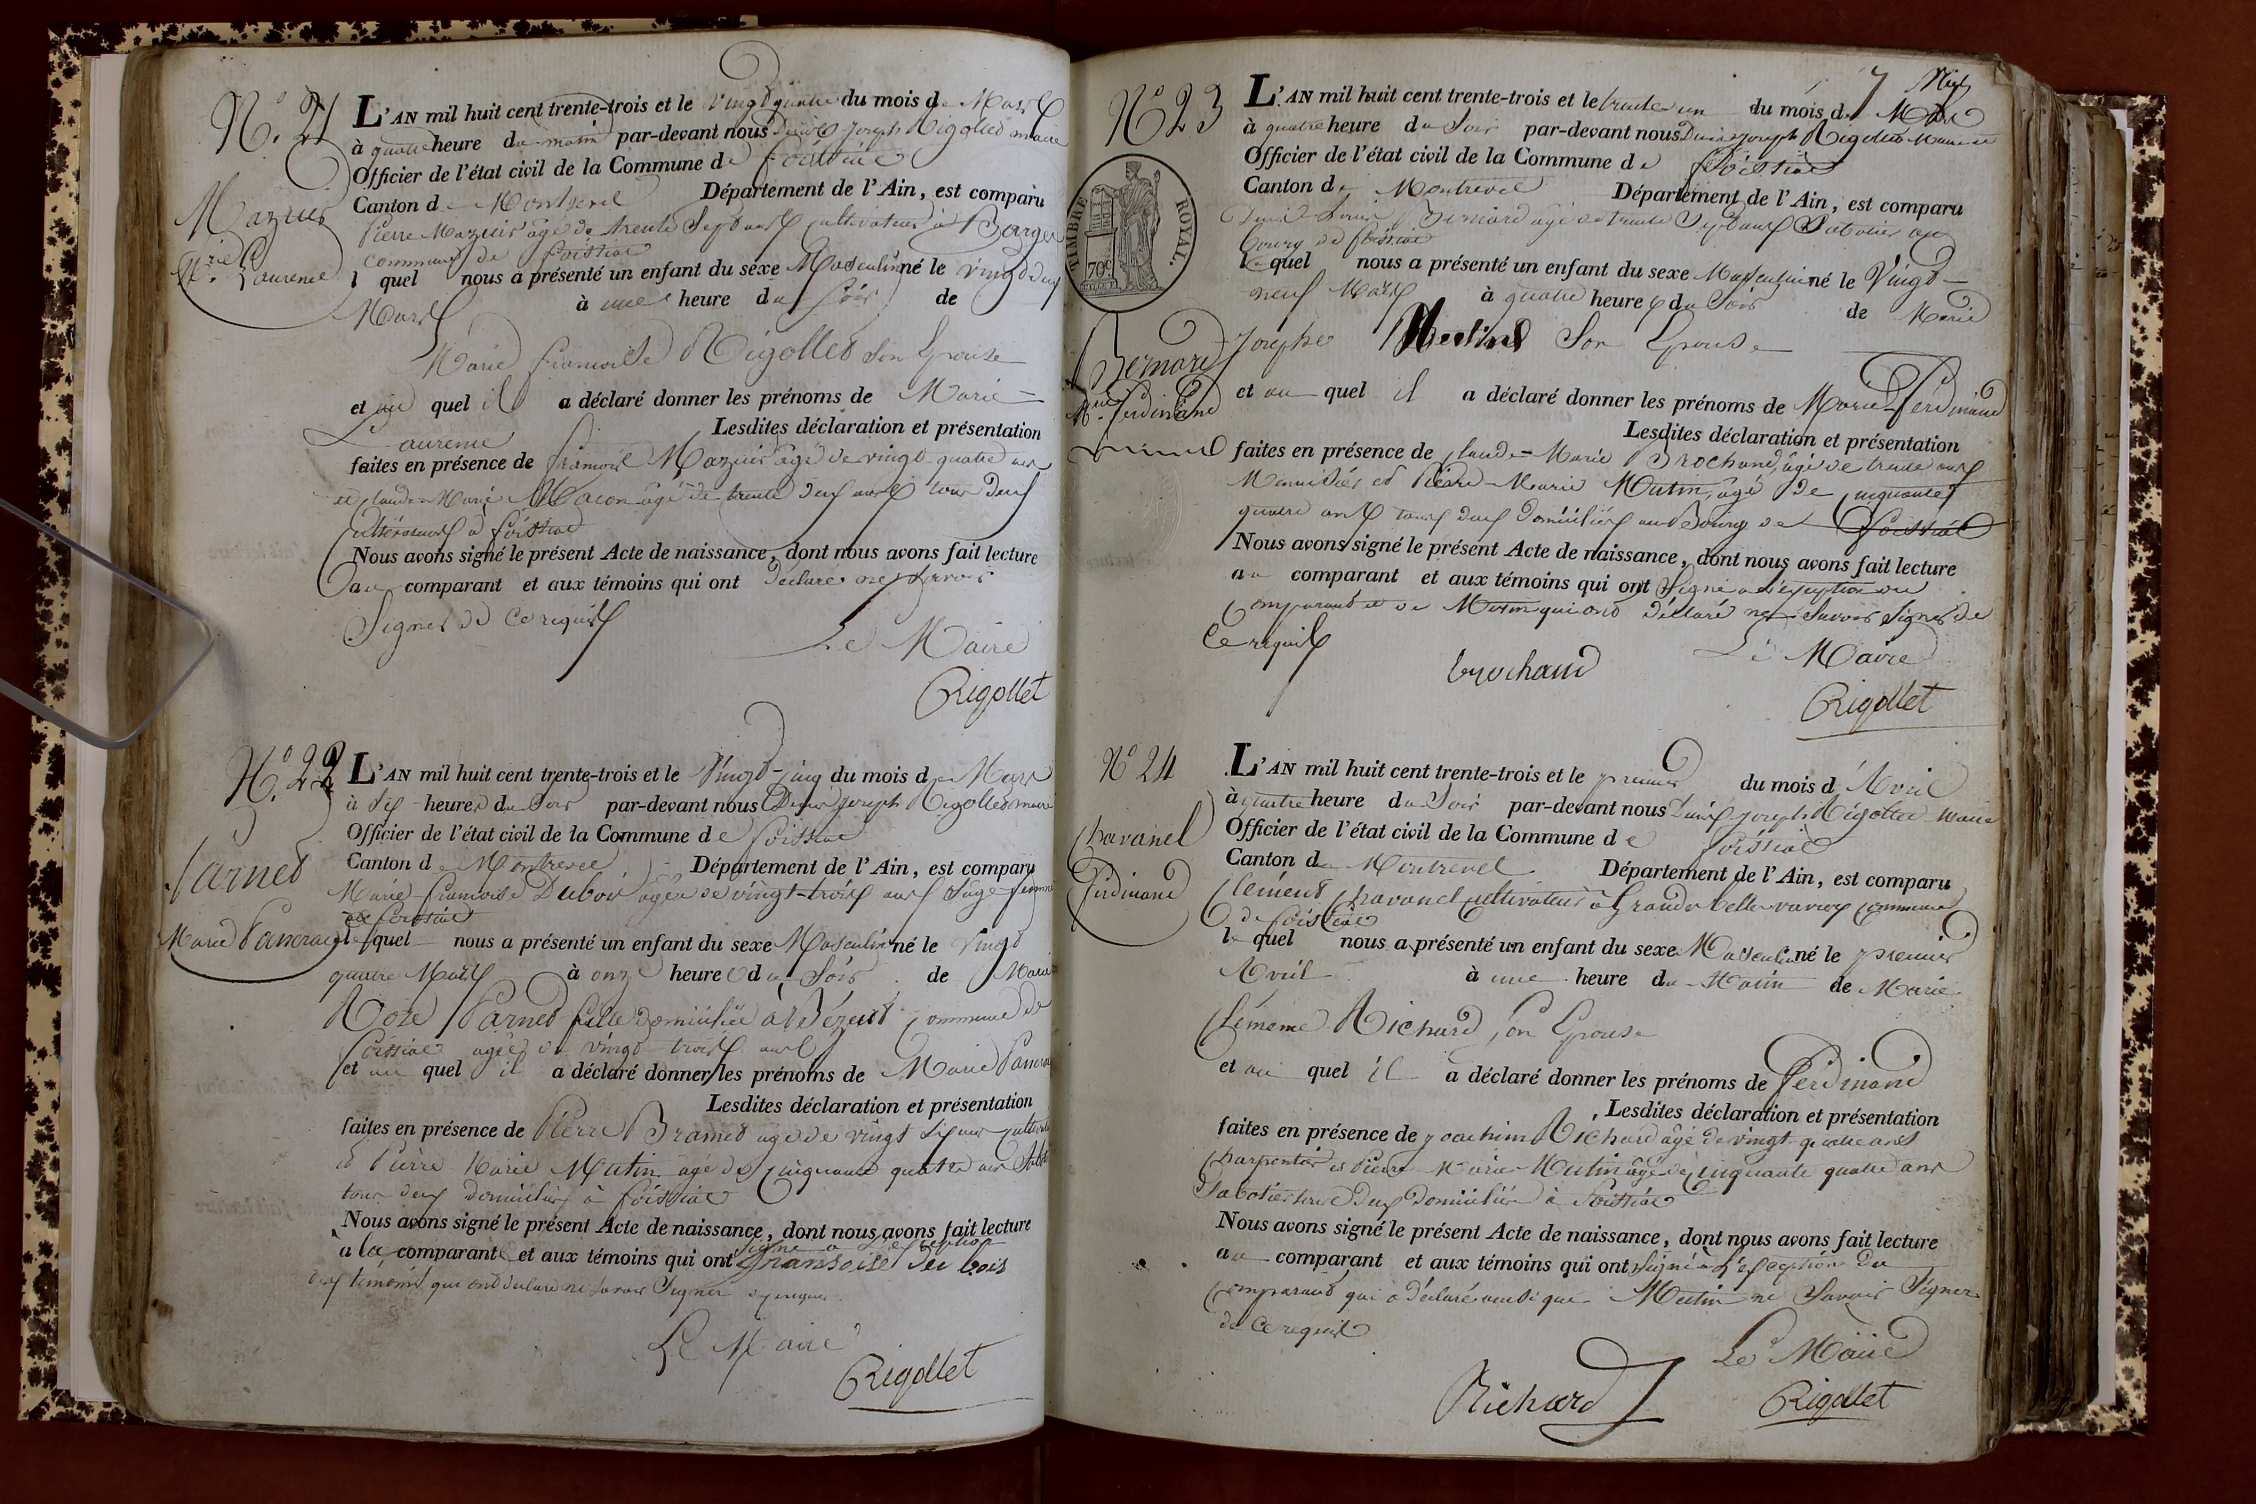 N.° 21
L'AN mil huit cent trente-trois et le vingt quatre du mois de Mars
à quatre heure du matin par-devant nous Denis Joseph Rigollet maire
Officier de l'état civil de la Commune de foissiat
Canton de Montrevel Département de l'Ain, est comparu
Mazuir
M.rie Laurence
Pierre Mazuir âgé de trente Sept ans cultivateur à
commune de foissiat
l quel nous a présenté un enfant du sexe Masculin né le vingt deux
Mars à une heure du Soir de
Marie francoise Rigollet Son Epouse
et au quel il a déclaré donner les prénoms de Marie
Laurence Lesdites déclaration et présentation
faites en présence de francois Mazuir âgé de vingt quatre ans
et Claude Marie Macon âgé de trente deux ans tous deux
cultivateurs à foissiat
Nous avons signé le présent Acte de naissance, dont nous avons fait lecture
au comparant et aux témoins qui ont déclaré ne Savoir
Signer de ce requis
Le Maire
Rigollet
N.° 22
L'AN mil huit cent trente-trois et le vingt-cinq du mois de Mars
à Six heures du Soir par-devant nous Denis Joseph Rigollet maire
Officier de l'état civil de la Commune de foissiat
Canton de Montrevel Département de l'Ain, est comparu
Parnet
Marie Pancrace
Marie francoise Dubois âgée de vingt-trois ans Sage femme
de foissiat
l quel nous a présenté un enfant du sexe Masculin né le vingt
quatre Mars à onze heure du Soir de Marie
Rose Parnet fille domiciliée à commune de
foissiat agée de vingt trois ans
et au quel il a déclaré donner les prénoms de Marie Pancrace
Lesdites déclaration et présentation
faites en présence de Pierre Bramet age de vingt Six ans
et Pierre Marie Mutin âgé de cinquante quatre ans
tous deux domiciliés à foissiat
Nous avons signé le présent Acte de naissance, dont nous avons fait lecture
à la comparante et aux témoins qui ont Signé a l'exception
fransoise du bois
des témoins qui ont déclaré ne Savoir Signer
Le Maire
Rigollet
7
N° 23
L'AN mil huit cent trente-trois et le trente un du mois de Mars
à quatre heure du Soir par-devant nous Denis Joseph Rigollet Maire
Officier de l'état civil de la Commune de foissiat
Canton de Montrevel Département de l'Ain, est comparu
TIMBRE ROYAL.
70c
Bernard
M.rie Ferdinand
Bernard agé de trente Sept ans Sabotier au
bourg de foissiat
le quel nous a présenté un enfant du sexe Masculin né le Vingt-
neuf Mars à quatre heure du Soir de Marie
Josephe Mutin Son Epouse
et au quel il a déclaré donner les prénoms de Marie-Ferdinand
Lesdites déclaration et présentation
faites en présence de Claude-Marie Brochand, âgé de trente ans
Menuisier et Pierre-Marie Mutin, âgé de cinquante
quatre ans tous deux domiciliés au Bourg de foissiat
Nous avons signé le présent Acte de naissance, dont nous avons fait lecture
au comparant et aux témoins qui ont Signé a l'exception du
comparant et de Mutin qui ont déclaré ne Savoir Signer de
Ce requis
brochand
Le Maire
Rigollet
N° 24
L'AN mil huit cent trente-trois et le premier du mois d'Avril
à quatre heure du Soir par-devant nous Denis Joseph Rigollet Maire
Officier de l'état civil de la Commune de foissiat
Canton de Montrevel Département de l'Ain, est comparu
Chavanel
Ferdinand
Clément Chavanel cultivateur à Grande belle vavre commune
de foissiat
le quel nous a présenté un enfant du sexe Masculin né le premier
Avril à une heure du Matin de Marie
Clémence Richard Son Epouse
et au quel il a déclaré donner les prénoms de Ferdinand
Lesdites déclaration et présentation
faites en présence de Joachim Richard âgé de vingt-quatre ans
Charpentier et Pierre Marie Mutin âgé de cinquante quatre ans
Sabotier tous deux domiciliés à foissiat
Nous avons signé le présent Acte de naissance, dont nous avons fait lecture
au comparant et aux témoins qui ont Signé à l'exception du
comparant qui a déclaré ainsi que Mutin ne Savoir Signer
de Ce requis
Le Maire
Richard
Rigollet